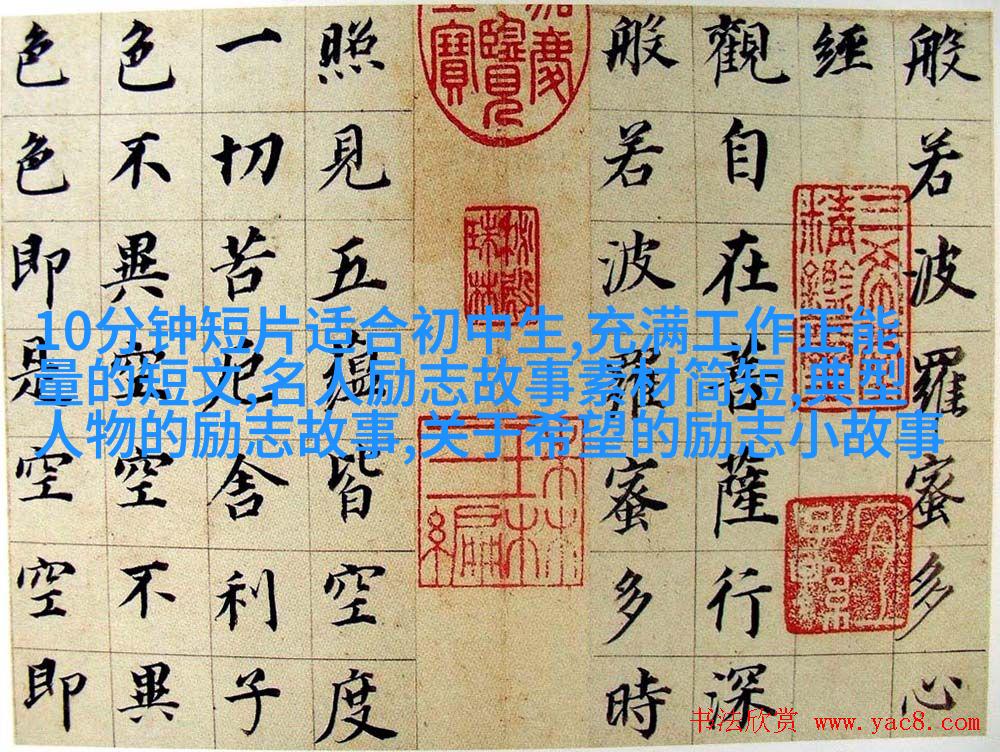 般若波羅蜜多心
經
觀自在菩薩行深
般若波羅蜜多時
照見五蘊皆空度
一切苦厄舍利子
色不異空空不異
色色即是空空即
三希堂精鑑璽
秘殿珠林
10分钟短片适合初中生,充满工作正能
量的短文,名人励志故事素材简短,典型
人物的励志故事,关于希望的励志小故事
书法欣赏 www.yac8.com